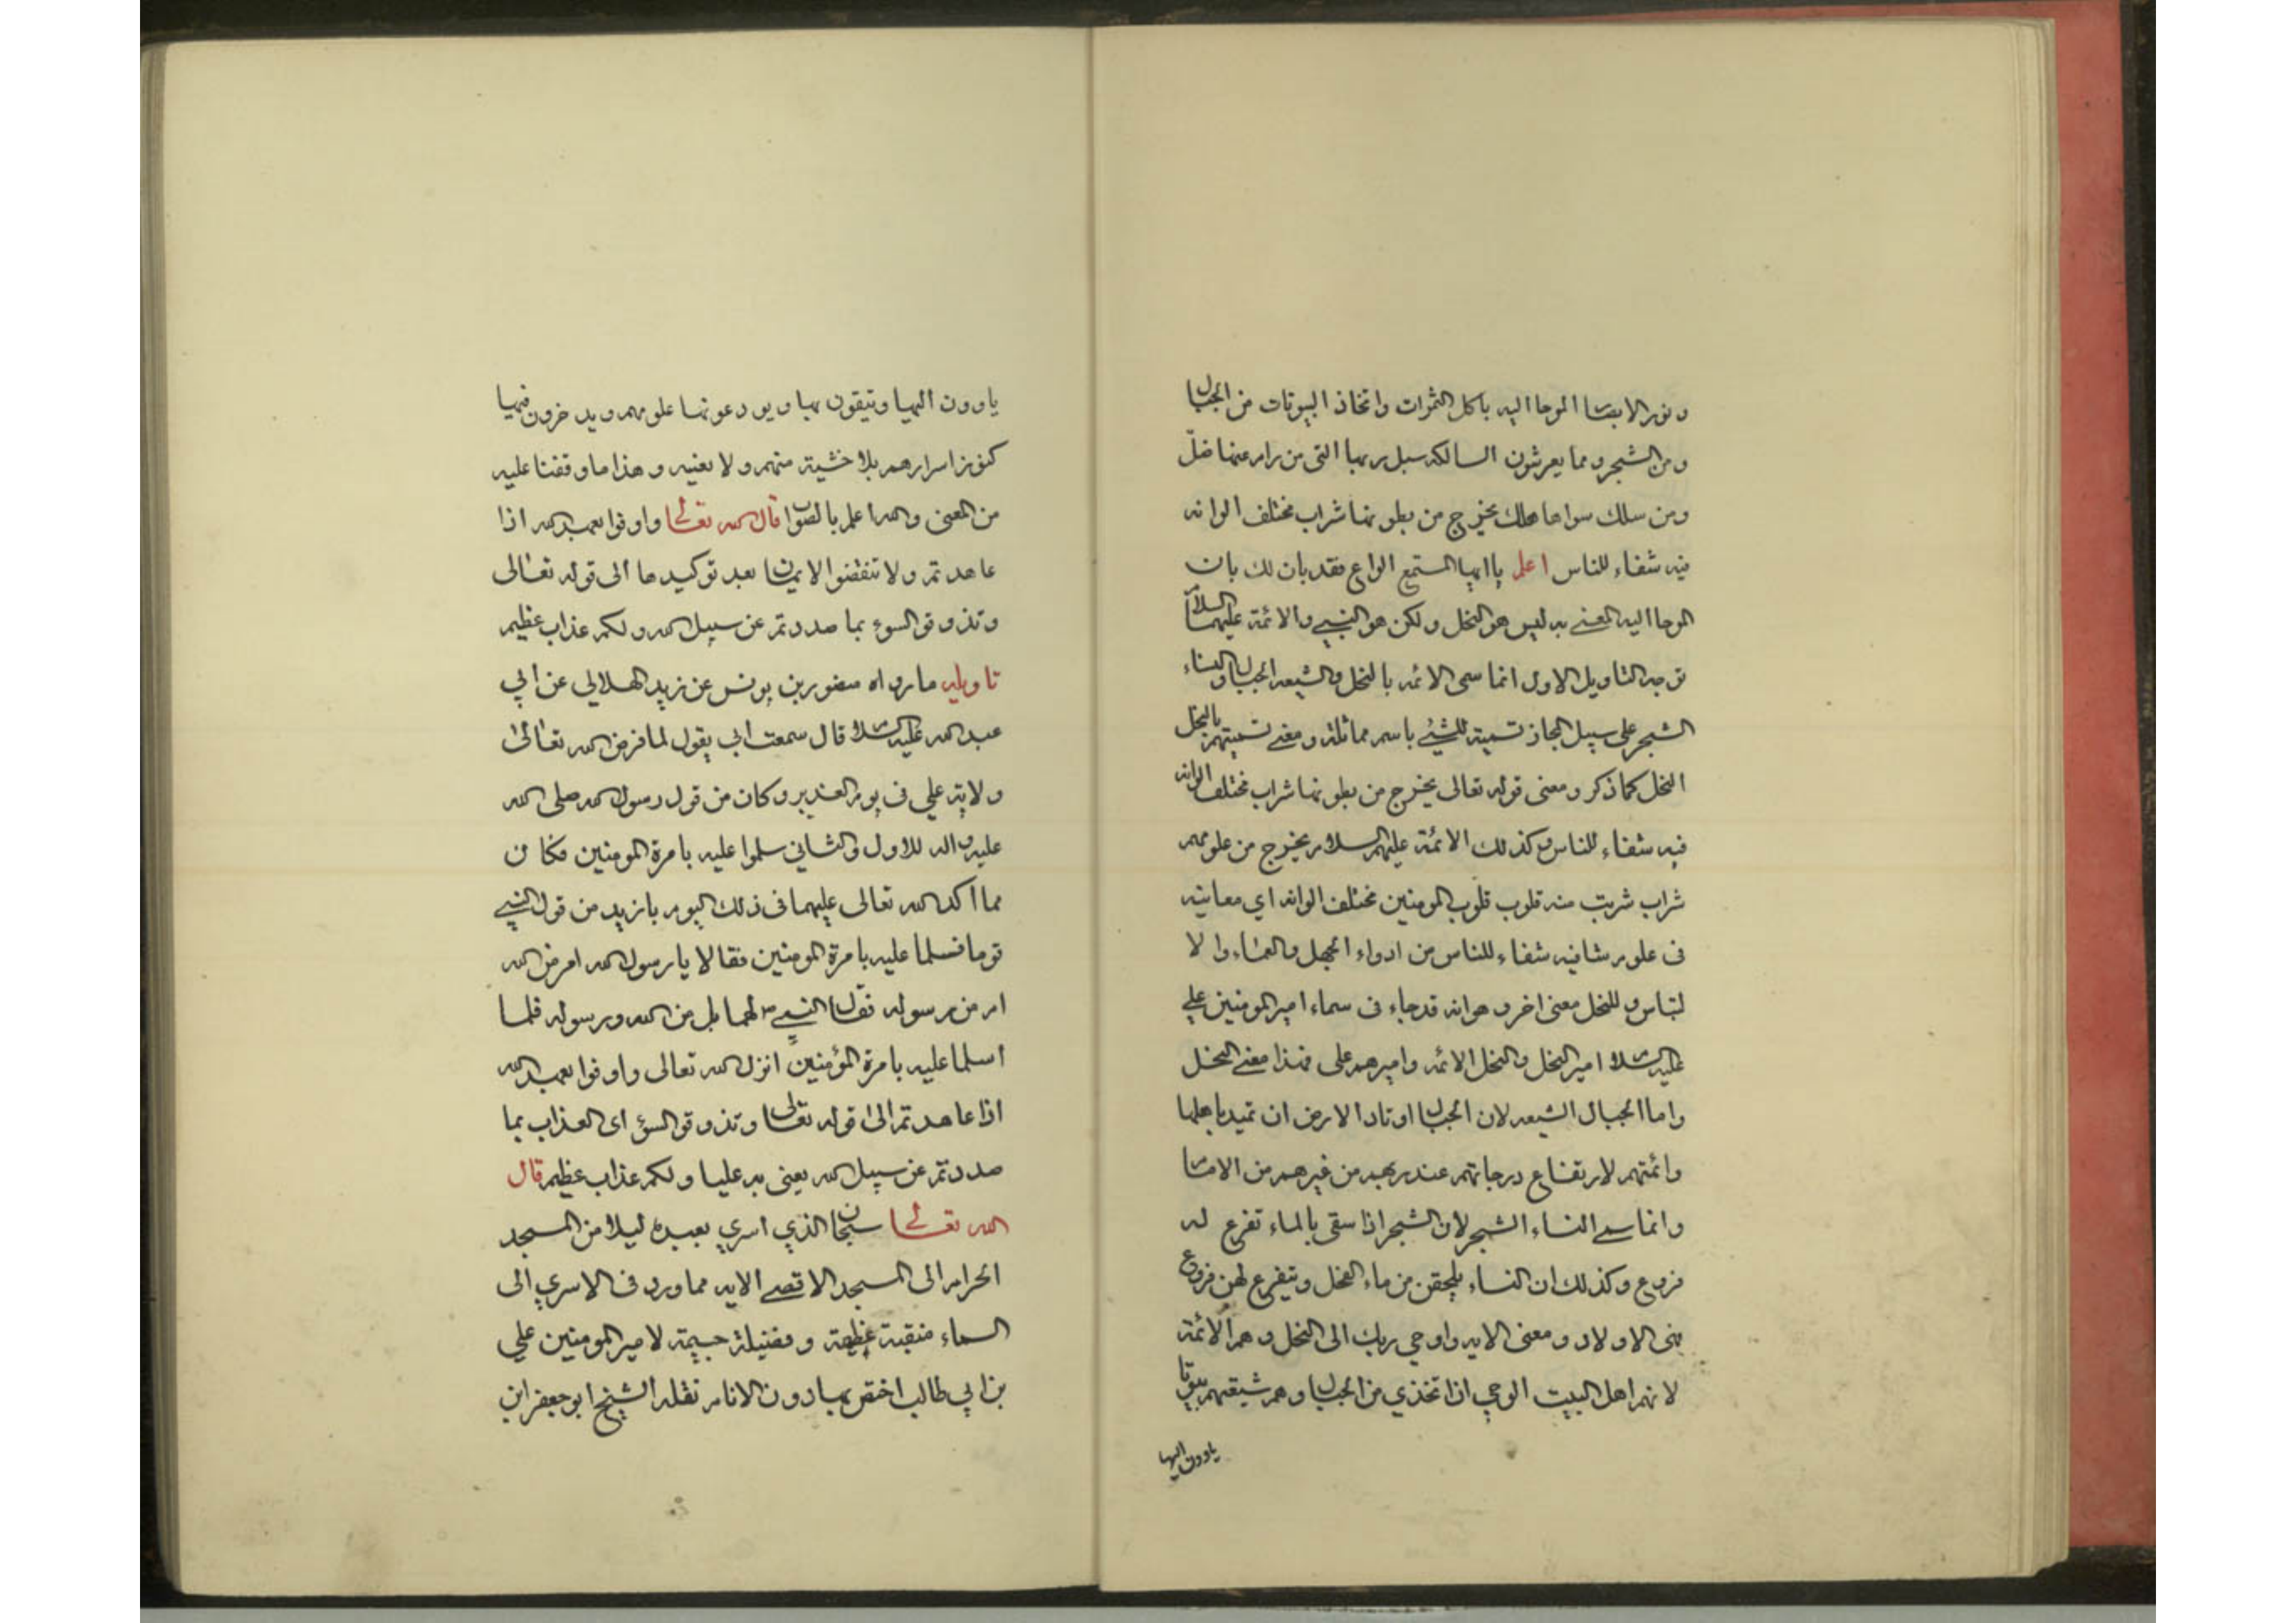 ونور الابصا الموحا اليه باكل الثمرات واتخاذ البيوتات من الجبال
ومن الشجر ومما يعرشون السالكه سبل ربها التي من رام عنها ضلّ
ومن سلك سواها هلك يخرج من بطونها شراب مختلف الوانه
فيه شفاء للناس اعلم ياايها المستمع الواع فقد بان لك بان
الموحا اليه المعنى به ليس هو النخل ولكن هو النبي والائمة عليهم السلام
توجيه التاويل الاول انما سمى الائمه بالنخل والشيعه الجبال والنساء
الشجر على سبيل المجاز تسمية للشيء باسم مماثلة ومعنى تسميتهم بالنخل
النحل كما ذكر ومعنى قوله تعالى يخرج من بطونها شراب مختلف الوانه
فيه شفاء للناس وكذلك الائمة عليهم السلام يخرج من علومهم
شراب شربت منه قلوب قلوب المومنين مختلف الوانه اي معانيه
فى علوم شافيه شفاء للناس من ادواء الجهل والعماء والا
لتباس وللنحل معنى اخر وهو انه قد جاء فى سماء امير المومنين علي
عليه السلام امير النحل والنحل الائمه واميرهم على فهذا معنى النحل
واما الجبال الشيعه لان الجبال اوتاد الارض ان تميد باهلها
وائمتهم لارتفاع درجاتهم عند ربهم من غيرهم من الامام
وانما سمى النساء الشجر لان الشجر اذا سقى بالماء تفرع له
فروع وكذلك ان النساء يلحقن من ماء الفحل ويتفرع لهن فروع
بنى الاولاد ومعنى الايه واوحي ربك الى النحل وهم الائمة
لانهم اهل البيت الوحي ان اتخذي من الجبال وهم شيعتهم بيوتا
ياوون اليها
ياوون اليها ويتقون بها ويودعونها علومهم ويدخرون فيها
كنوز اسرارهم بلا خشية منهم ولا بغيه وهذا ما وقفنا عليه
من المعنى والله اعلم بالصواب قال الله تعالى واوفوا بعهد الله اذا
عاهدتم ولا تنقضوا الايمان بعد توكيدها الى قوله تعالى
وتذوقو السوء بما صددتم عن سبيل الله ولكم عذاب عظيم
تاويله ما رواه منصور بن يونس عن زيد الهلالي عن ابي
عبد الله عليه السلام قال سمعت ابي يقول لما فرض الله تعالى
ولاية علي فى يوم الغدير وكان من قول رسول الله صلى الله
عليه واله للاول والثاني سلموا عليه بامرة المومنين فكان
مما اكد الله تعالى عليهما فى ذلك اليوم يا زيد من قول النبي
قوما فسلما عليه بامرة المومنين فقالا يا رسول الله امر من الله
ام من رسوله فقال النبي ص لهما بل من الله ورسوله فلما
اسلما عليه بامرة المؤمنين انزل الله تعالى واوفوا بعهد الله
اذا عاهدتم الى قوله تعالى وتذوقو السؤ اى العذاب بما
صددتم عن سبيل الله يعنى به عليا ولكم عذاب عظيم قال
الله تعالى سبحان الذي اسري بعبده ليلا من المسجد
الحرام الى المسجد الاقصى الايه مما ورد فى الاسري الى
السماء منقبة عظيمة وفضيلة جسيمة لامير المومنين علي
بن ابي طالب اختص بها دون الانام نقله الشيخ ابو جعفر ابن